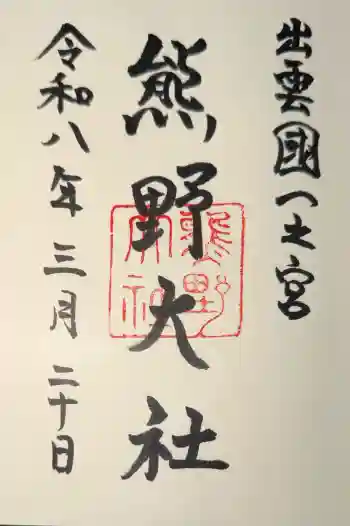 出雲國一之宮
熊野大社
熊野大社
令和八年三月二十日